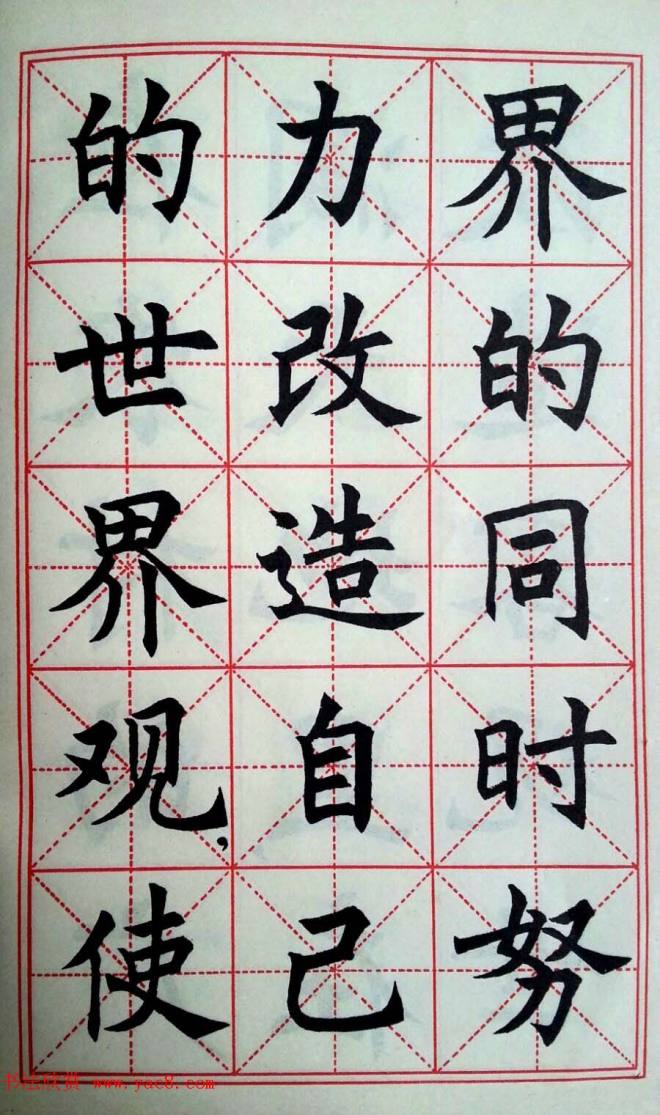 界的同时努
力改造自己
的世界观，使
书法欣赏 www.yac8.com